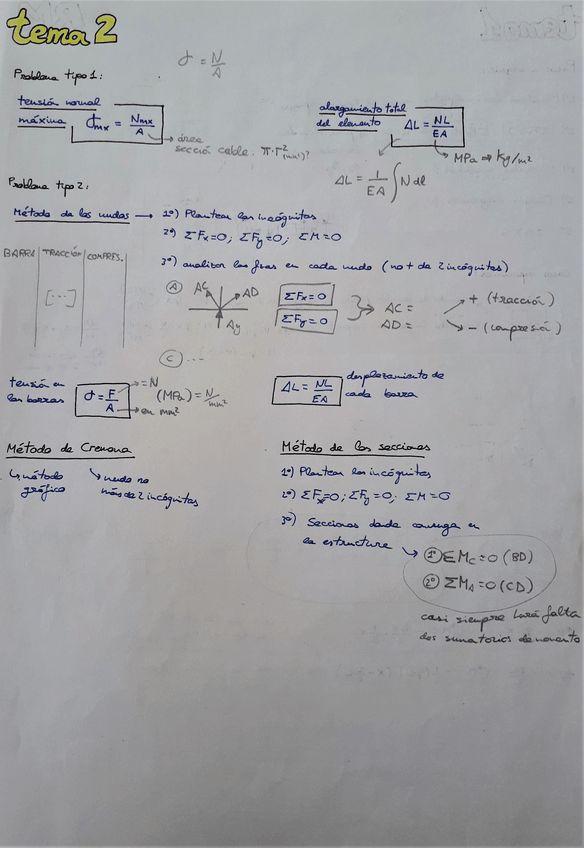 tema 2
σ = N/A
Problema tipo 1:
tensión normal
máxima σmx = Nmx/A
→ área
sección cable. π·r²(mm²)?
alargamiento total
del elemento ΔL = NL/EA
→ MPa ⇒ kg/m²
ΔL = 1/EA ∫ N dl
Problema tipo 2:
Método de los nudos → 1º) Plantear las incógnitas
2º) ΣFx=0; ΣFy=0; ΣM=0
3º) analizar las fzas en cada nudo (no + de 2 incógnitas)
BARRA | TRACCIÓN | COMPRES.
[...]
A AC AD Ay
ΣFx=0
ΣFy=0
AC =
AD =
+ (tracción)
- (compresión)
C ...
tensión en
las barras σ = F/A
= N
(MPa) = N/mm²
en mm²
ΔL = NL/EA
desplazamiento de
cada barra
Método de Cremona
↳ método
gráfico
↘ nudo no
más de 2 incógnitas
Método de las secciones
1º) Plantear las incógnitas
2º) ΣFx=0; ΣFy=0; ΣM=0
3º) Secciones donde convenga en
la estructura
1º ΣMc=0 (BD)
2º ΣMA=0 (CD)
casi siempre hará falta
dos sumatorios de momento